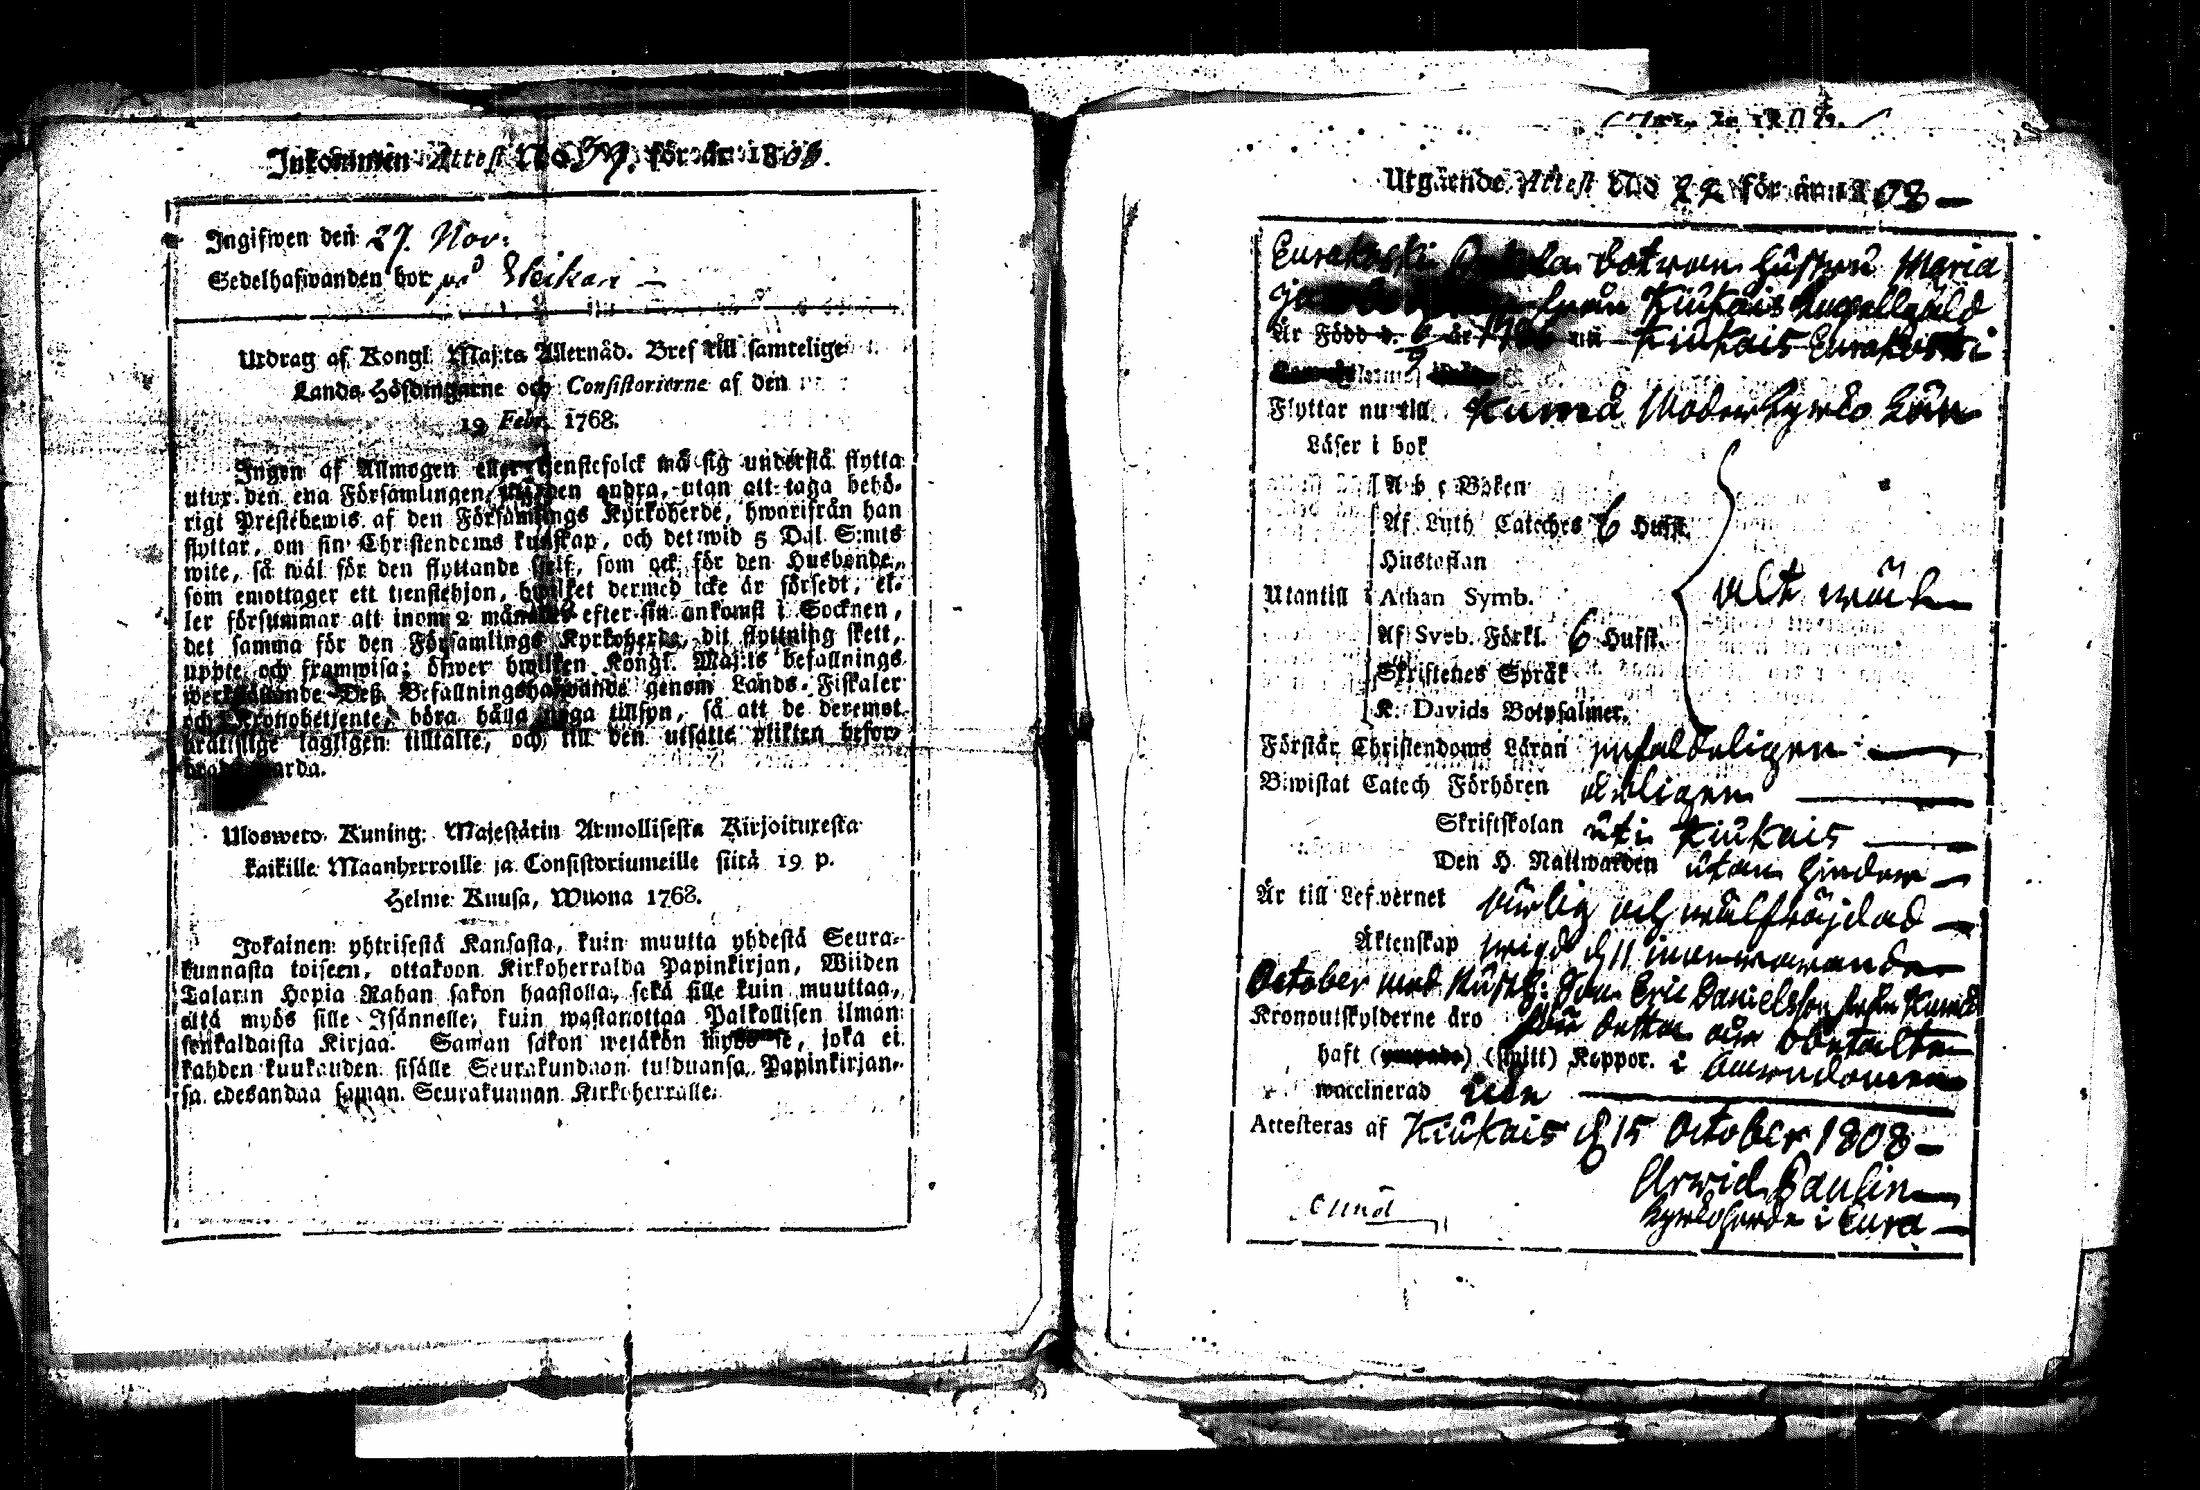 Inkommen Attest No 57. för år 1808.
Ingifwen den 27. Nov:
Sedelhafwanden bor på
Utdrag af Kongl. Maj:ts Allernåd. Bref till samtelige
Lands-Höfdingarne och Consistorierne af den
19 Febr. 1768.
Ingen af Allmogen eller tjenstefolck må sig understå flytta
utur den ena Församlingen, den andra, utan att taga behö-
rigt Prestebewis af den Församlings Kyrkoherde, hwarifrån han
flyttar, om sin Christendoms kunskap, och det wid 5 Dal. S:mts
wite, så wäl för den flyttande sjelf, som ock för den Husbonde,
som emottager ett tienstehjon, hwilket dermed icke är försedt, el-
ler försummar att inom 2 månader efter sin ankomst i Socknen,
det samma för den Församlings Kyrkoherde, dit flyttning skett,
uppte och framwisa; öfwer hwilken Kongl. Maj:ts befallnings
werkställande Deß Befallningshafwande genom Lands-Fiskaler
och Kronobetjente, böra hålla noga tillsyn, så att de deremot
brättslige lagligen tilltalte, och till den utsatte plikten befor-
warda.
Ulosweto Kuning: Majestätin Armollisesta Kirjoituxesta
kaikille Maanherroille ja Consistoriumeille siitä 19 p.
Helme Kuusa, Wuona 1768.
Jokainen yhtrisestä Kansasta, kuin muutta yhdestä Seura-
kunnasta toiseen, ottakoon Kirkoherralda Papinkirjan, Wiiden
Talarin Hopia Rahan sakon haastolla, sekä sille kuin muuttaa,
että myös sille Isännelle, kuin wastanottaa Palkollisen ilman
senkaldaista Kirjaa. Saman sakon wetäkön myös se, joka ei
kahden kuukauden sisälle Seurakundaan tulduansa, Papinkirjan-
sa edesandaa saman Seurakunnan Kirkoherralle.
Utgående Attest No 22 för år 1808
Eurakoski botwan hustru Maria
från Kiukais Kapellgäld
Är Född d. 6/9 år Kiukais Eurakoski
Flyttar nu till Kumå Moderkyrko
Läser i bok
A b c Boken
Af Luth Cateches 6 Hufst.
Hustaflan
Utantill Athan Symb. alt wäl
Af Sveb. Förkl. 6 Hufst.
Skriftenes Språk
K. Davids Botpsalmer.
Förstår Christendoms Läran enfaldeligen
Biwistat Catech Förhören årligen
Skriftskolan uti Kiukais
Den H. Nattwarden utan hinder
Är till Lefvernet ärlig och wälfräjdad
Äktenskap wigd d. 11 innewarande
October med Eric Danielsson från Kumå
Kronoutskylderne äro för detta år obetalte
haft () (smitt) Koppor. i barndomen
waccinerad icke
Attesteras af Kiukais d 15 October 1808
Arwid Paulin
Kyrkoherde i Eura